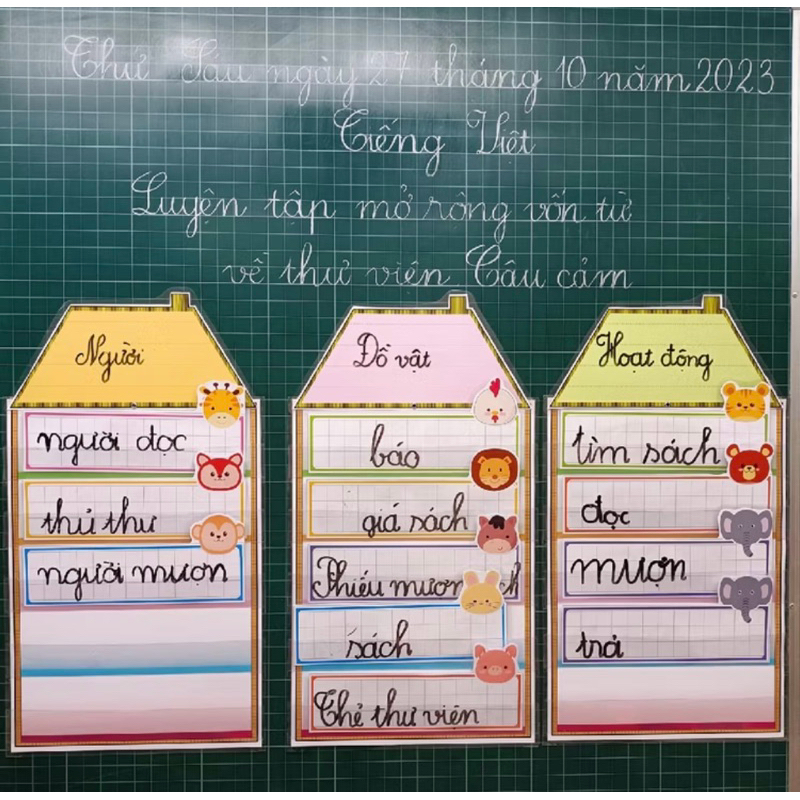 Thứ Sáu ngày 27 tháng 10 năm 2023
Tiếng Việt
Luyện tập mở rộng vốn từ
về thư viện Câu cảm
Người
người đọc
thủ thư
người mượn
Đồ vật
báo
giá sách
Phiếu mượn ch
sách
Thẻ thư viện
Hoạt động
tìm sách
đọc
mượn
trả